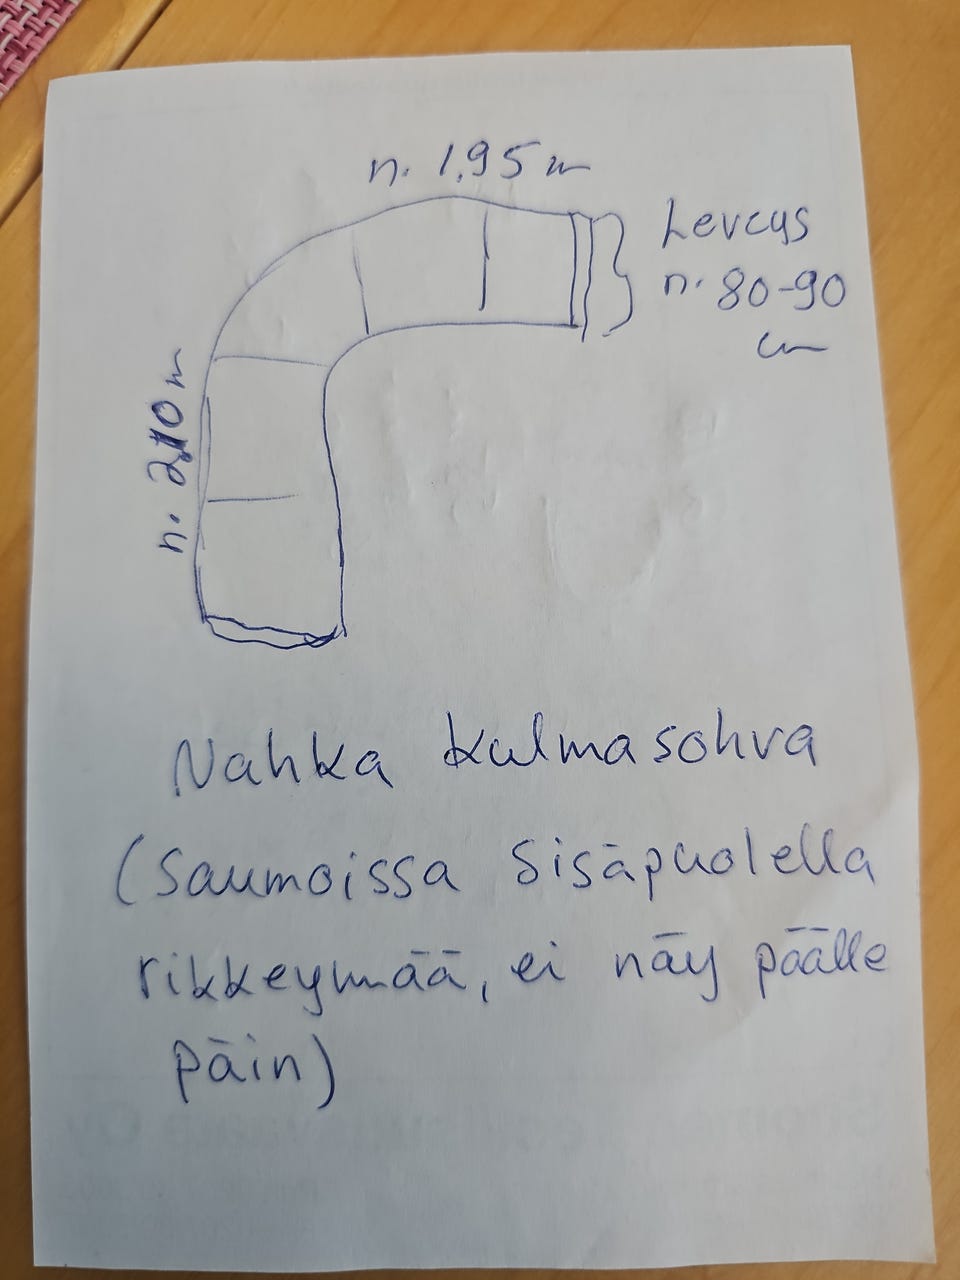 n. 1,95 m
Leveys
n. 80-90
cm
n. 2,10 m
Nahka kulmasohva
(Saumoissa sisäpuolella
rikkeymää, ei näy päälle
päin)